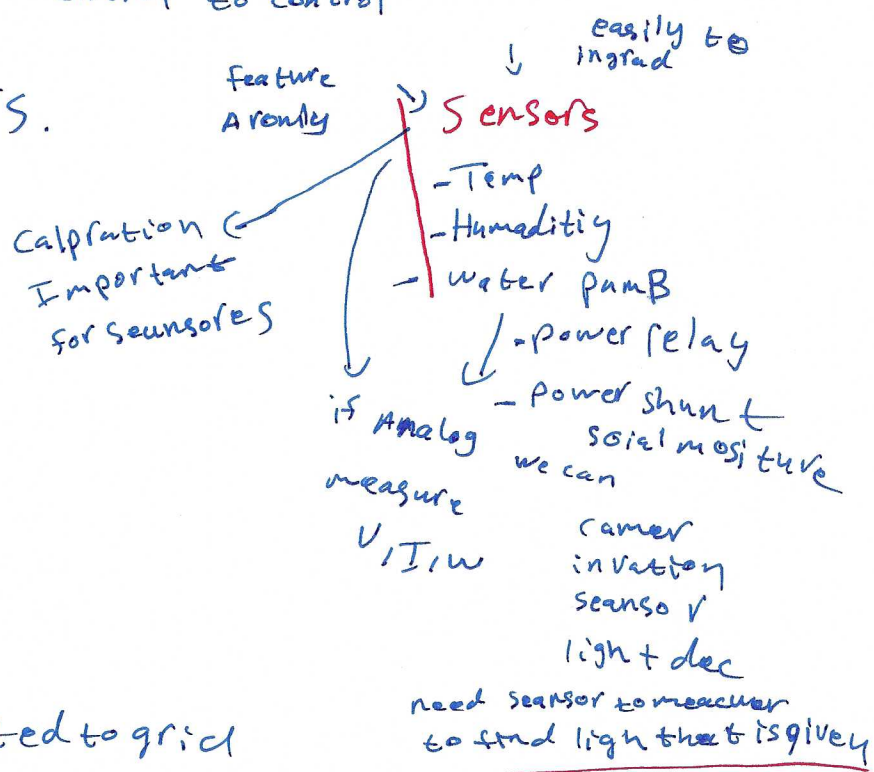 to control
easily to
ingrad
feature
Aronly
S.
Sensors
-Temp
-Humaditiy
- water pumB
Calpration
Important
for seunsores
-power relay
- power shunt
soial mositure
we can
if Analog
measure
V,I,w
camer
invation
seansor
light dec
need seansor to meacuer
to find ligh that is given
ted to grid